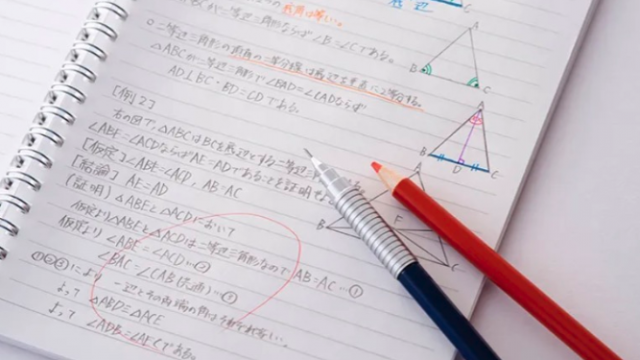 △ABCが二等辺三角形ならば∠B=∠Cである。
角は等しい。
底辺
A
B
C
○二等辺三角形の頂角の二等分線は底辺を垂直に2等分する。
△ABCが二等辺三角形で∠BAD=∠CADならば
AD⊥BC・BD=CDである
A
B
D
C
[例2]
右の図で、△ABCはBCを底辺とする二等辺三角形
∠ABE=∠ACDならばAE=ADであることを証明
[仮定]∠ABE=∠ACD, AB=AC
[結論] AE=AD
[証明] △ABEと△ACDにおいて
A
B
F
C
仮定より△ABEと△ACDは二等辺三角形なのでAB=AC…①
仮定より ∠ABE=∠ACD…②
∠BAC=∠CAB(共通)…③
①②③により 一辺とその両端の角は
よって △ABD≡△ACE
よって ∠ADB=∠AECである。